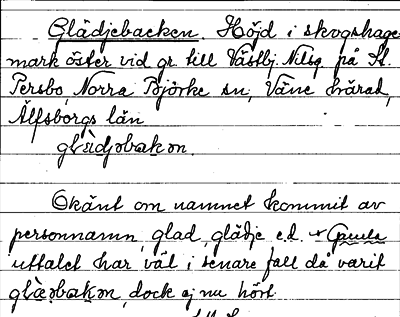 Glädjebacken. Höjd i skogshage-
mark öster vid gr. till Västbj. Nilsg. på St.
Persbo, Norra Björke sn, Väne härad,
Älfsborgs län
glädjəbakən.
Okänt om namnet kommit av
personnamn, glad, glädje e.d.
uttalet har väl i senare fall då varit
dock ej nu hört.